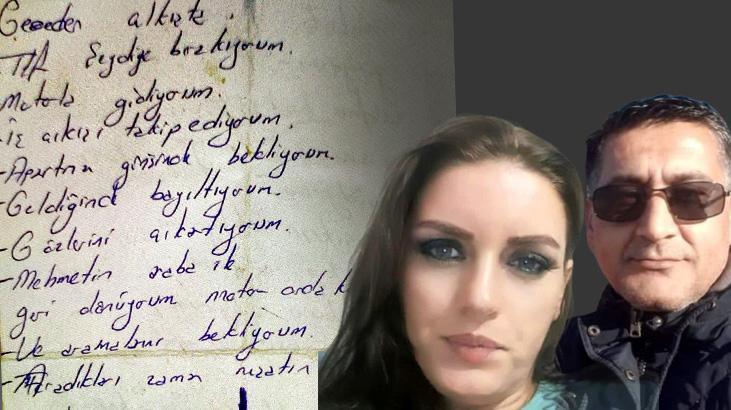 Geceden alkizte.
-TIR Seydiye bırakıyorum.
Motorla gidiyorum.
-iş çıkışı takip ediyorum.
-Apartma girişinde bekliyorum.
-Geldiğinde bayıltıyorum.
-Gözlerini çıkartıyorum.
-Mehmetin araba ile
geri dönüyorum motor orda
-Ve aramaları bekliyorum.
-Aradıkları zaman